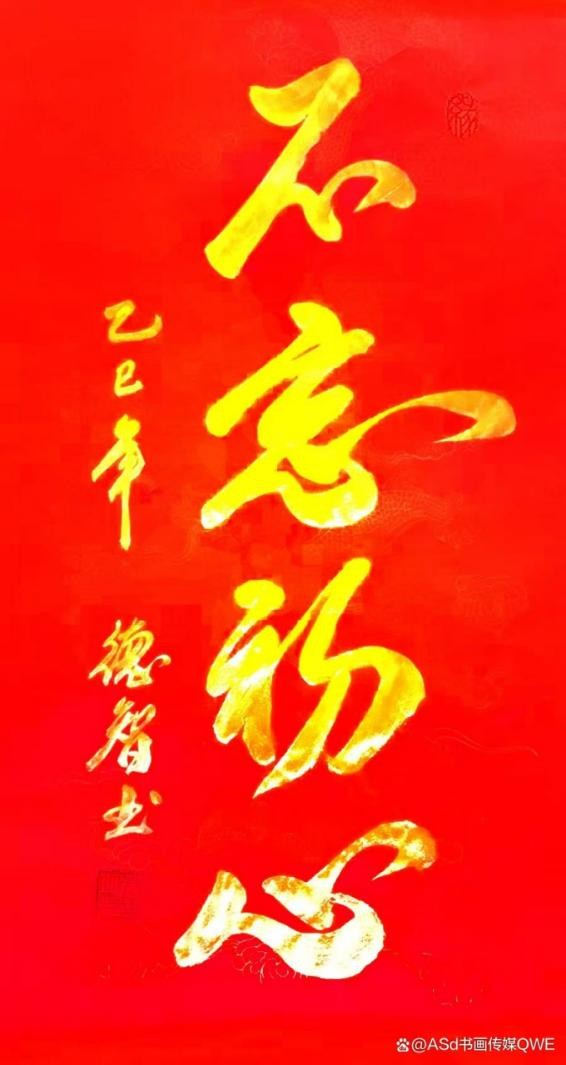 不忘初心
乙巳年
德智书
@ASd书画传媒QWE